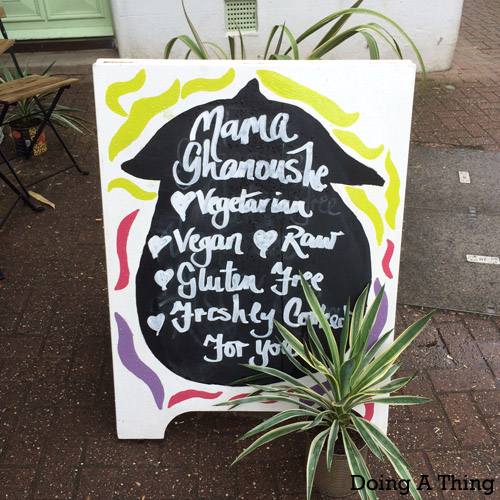 Mama
Ghanoushe
Vegetarian
Vegan Raw
Gluten Free
Freshly Cooked
For you
Doing A Thing